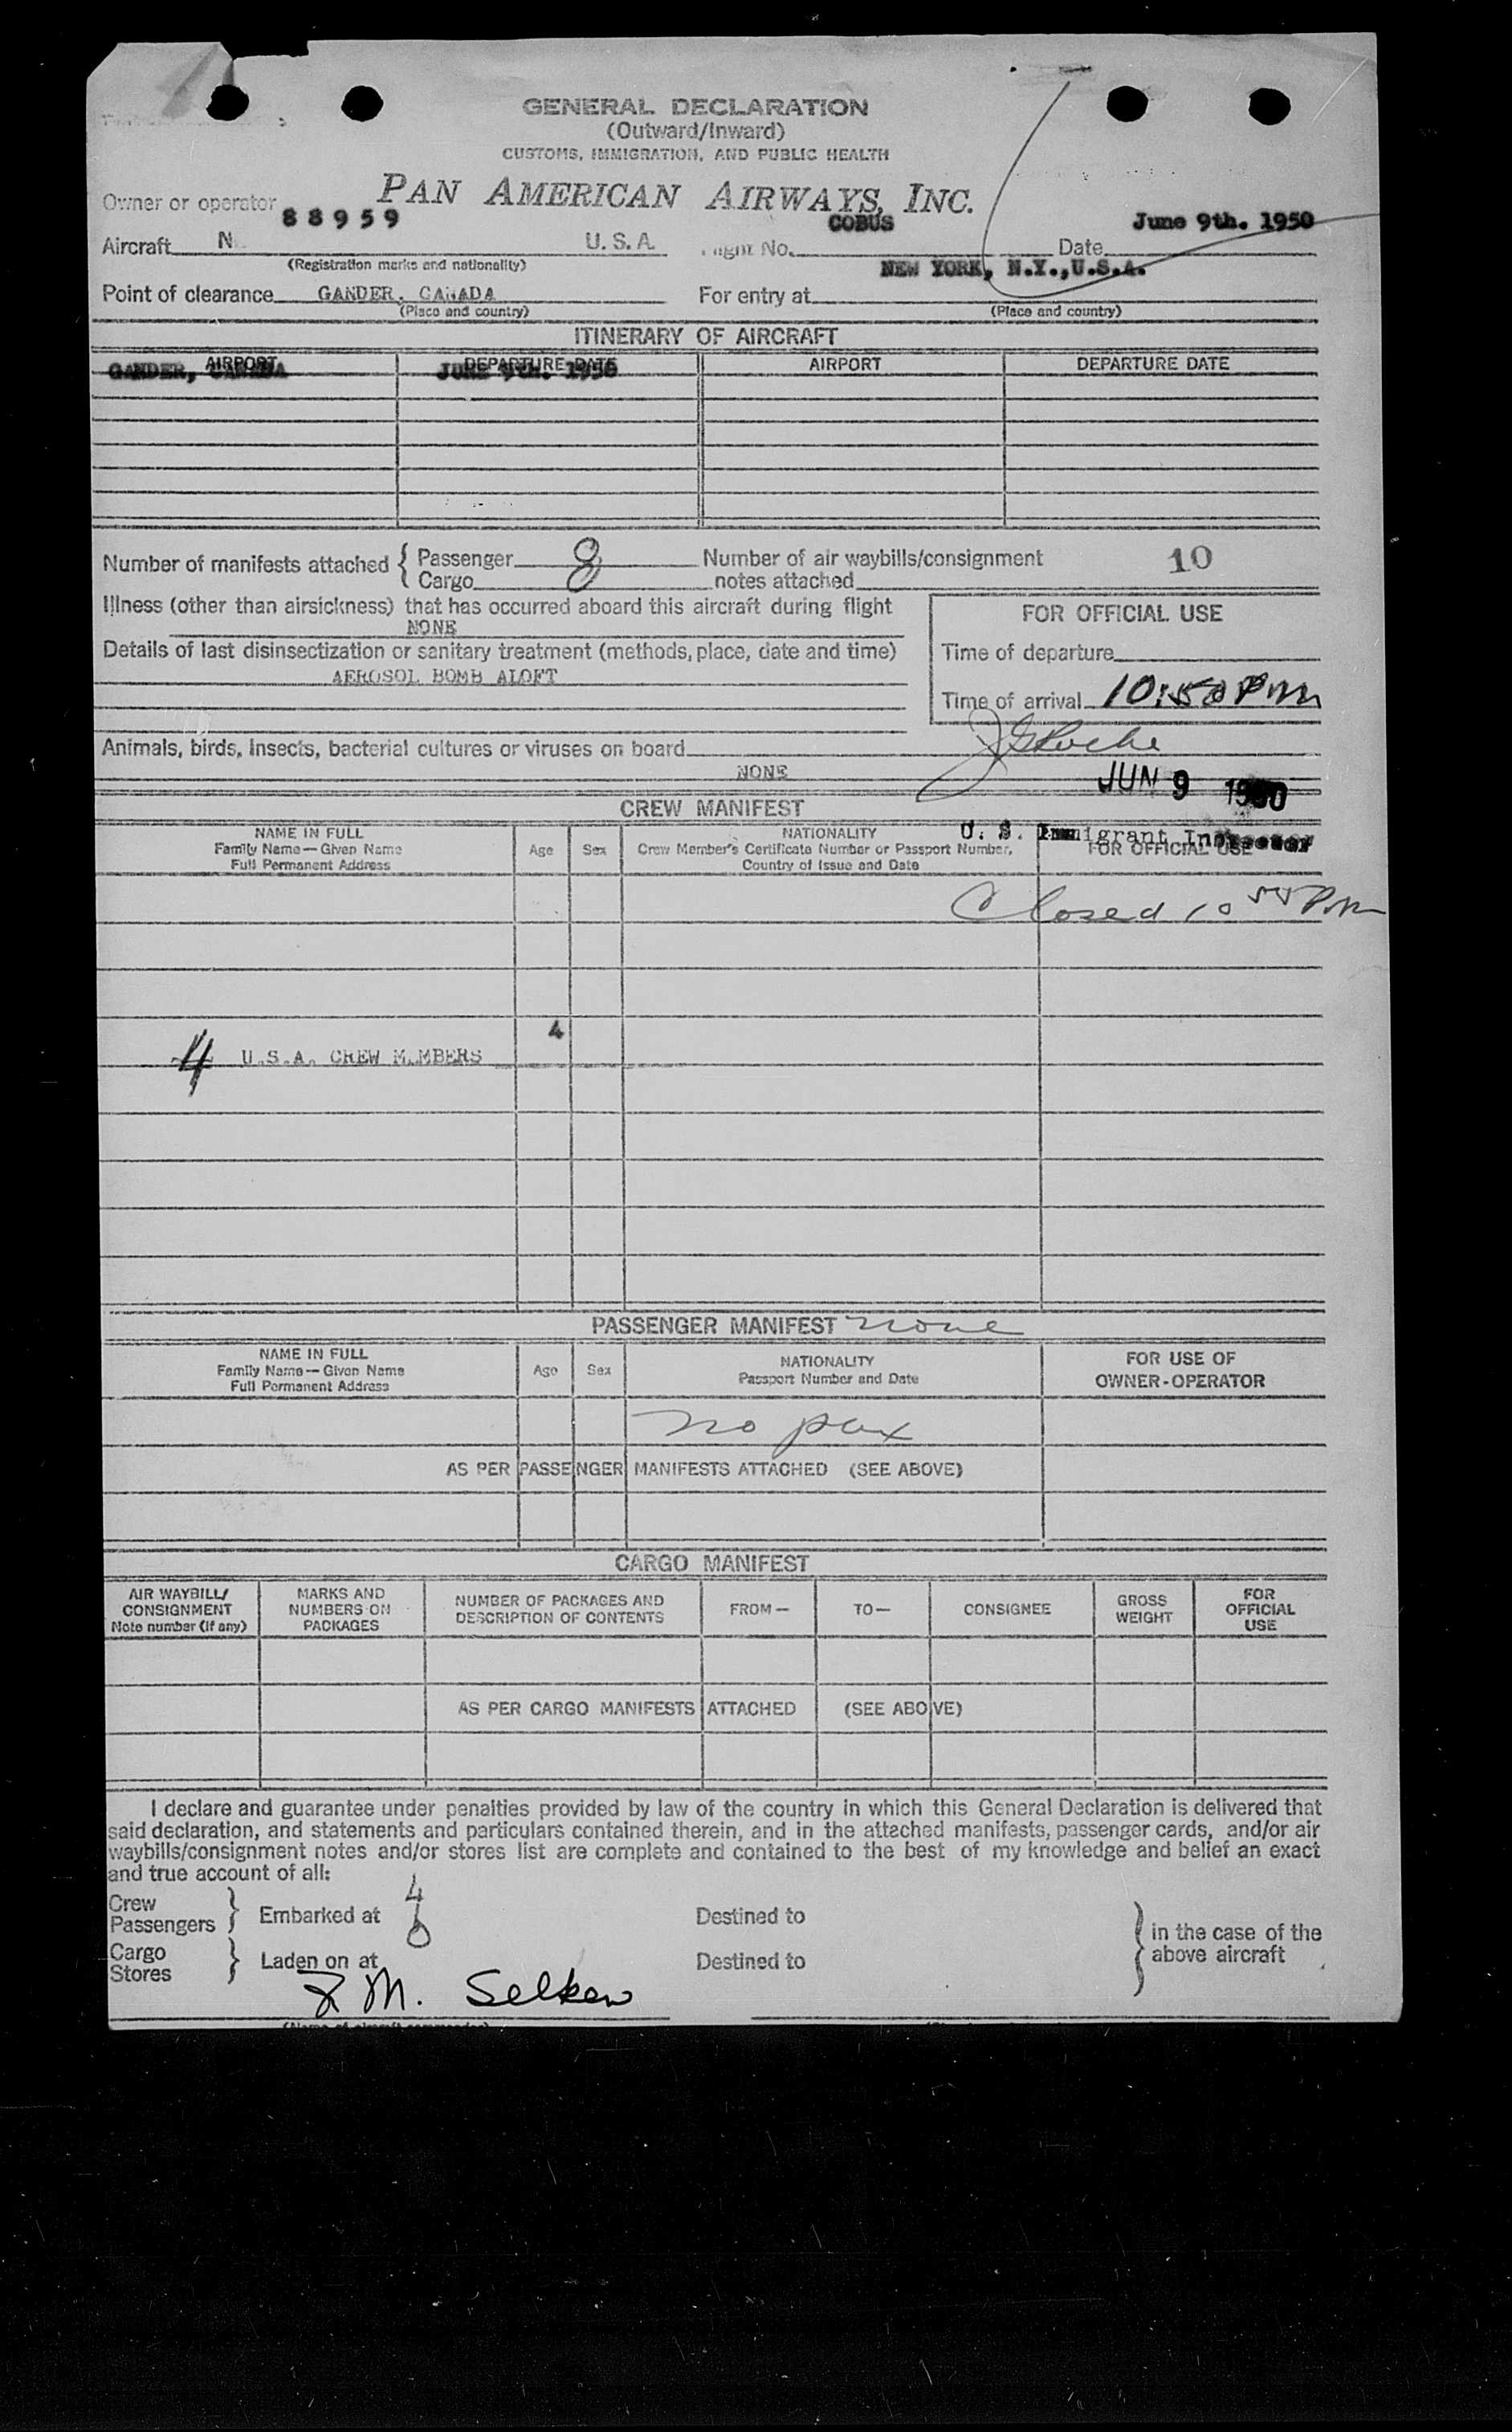 GENERAL DECLARATION
(Outward/Inward)
CUSTOMS, IMMIGRATION, AND PUBLIC HEALTH
Owner or operator PAN AMERICAN AIRWAYS, INC.
88959 COBUS June 9th. 1950
Aircraft N U.S.A. Flight No. Date
(Registration marks and nationality)
NEW YORK, N.Y.,U.S.A.
Point of clearance GANDER, CANADA For entry at
(Place and country) (Place and country)
ITINERARY OF AIRCRAFT
AIRPORT DEPARTURE DATE AIRPORT DEPARTURE DATE
GANDER, CANADA JUNE 9TH. 1950
Number of manifests attached { Passenger Number of air waybills/consignment 10
Cargo 8 notes attached
Illness (other than airsickness) that has occurred aboard this aircraft during flight
NONE
FOR OFFICIAL USE
Details of last disinsectization or sanitary treatment (methods, place, date and time)
AEROSOL BOMB ALOFT
Time of departure
Time of arrival 10:50 PM
Animals, birds, insects, bacterial cultures or viruses on board
NONE
JUN 9 1950
CREW MANIFEST
U. S. Immigrant Inspector
NAME IN FULL
Family Name—Given Name
Full Permanent Address
Age
Sex
NATIONALITY
Crew Member's Certificate Number or Passport Number,
Country of Issue and Date
FOR OFFICIAL USE
Closed 10 55 PM
4
4 U.S.A. CREW M.MBERS
PASSENGER MANIFEST none
NAME IN FULL
Family Name—Given Name
Full Permanent Address
Age
Sex
NATIONALITY
Passport Number and Date
FOR USE OF
OWNER-OPERATOR
no pax
AS PER PASSENGER MANIFESTS ATTACHED (SEE ABOVE)
CARGO MANIFEST
AIR WAYBILL/
CONSIGNMENT
Note number (if any)
MARKS AND
NUMBERS ON
PACKAGES
NUMBER OF PACKAGES AND
DESCRIPTION OF CONTENTS
FROM—
TO—
CONSIGNEE
GROSS
WEIGHT
FOR
OFFICIAL
USE
AS PER CARGO MANIFESTS ATTACHED (SEE ABOVE)
I declare and guarantee under penalties provided by law of the country in which this General Declaration is delivered that
said declaration, and statements and particulars contained therein, and in the attached manifests, passenger cards, and/or air
waybills/consignment notes and/or stores list are complete and contained to the best of my knowledge and belief an exact
and true account of all:
Crew
Passengers } Embarked at 4 Destined to
Cargo
Stores } Laden on at Destined to
} in the case of the
above aircraft
M. Selken